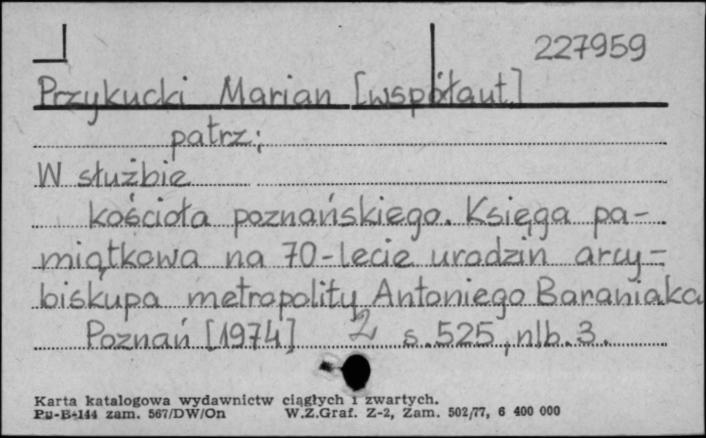 227959
Przykucki Marian [współaut.]
patrz:
W służbie
kościoła poznańskiego. Księga pa-
miątkowa na 70-lecie urodzin arcy-
biskupa metropolity Antoniego Baraniaka
Poznań [1974] 2 s. 525, nlb. 3.
Karta katalogowa wydawnictw ciągłych i zwartych.
Pu-B-144 zam. 567/DW/On W.Z.Graf. Z-2, Zam. 502/77, 6 400 000